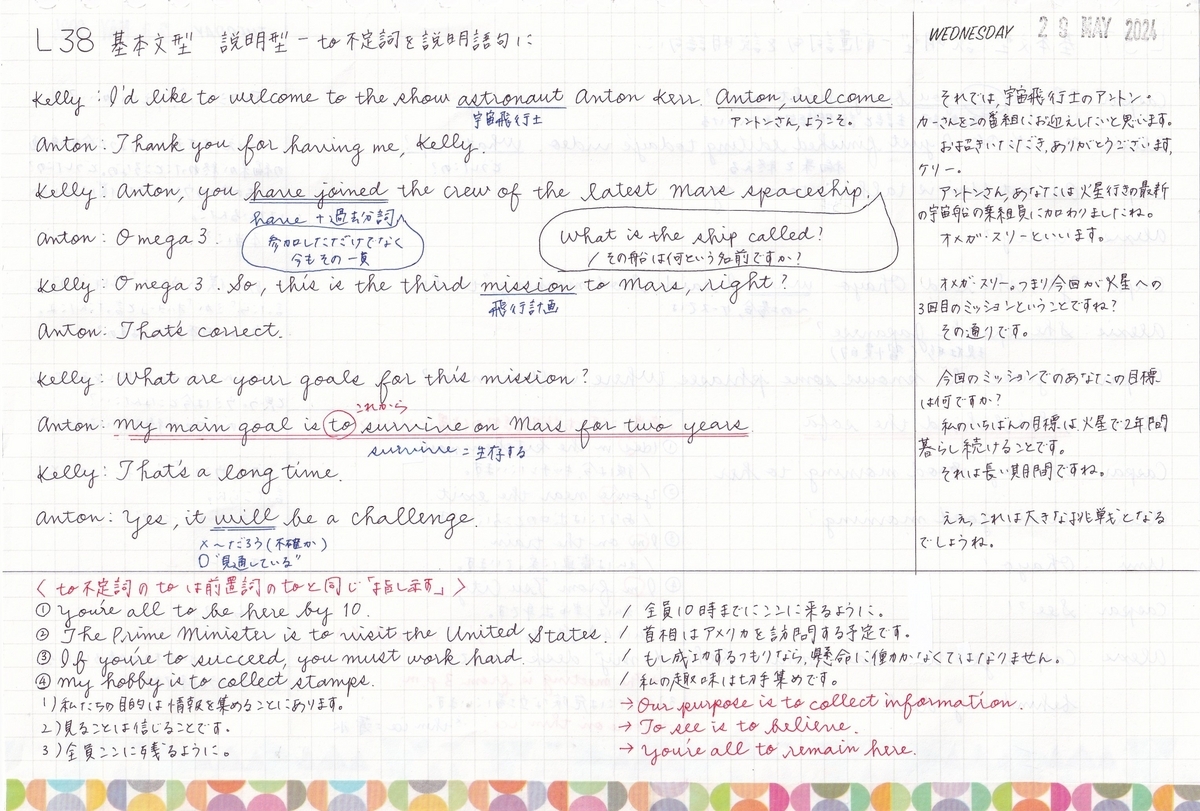 L38 基本文型 説明型 - to不定詞を説明語句に
WEDNESDAY 29 MAY 2024
Kelly : I'd like to welcome to the show astronaut Anton Kerr. Anton, welcome.
宇宙飛行士
アントンさん,ようこそ。
Anton : Thank you for having me, Kelly.
Kelly : Anton, you have joined the crew of the latest Mars spaceship.
have + 過去分詞
参加しただけでなく
今もその一員
What is the ship called?
/ その船は何という名前ですか?
Anton : Omega 3.
Kelly : Omega 3. So, this is the third mission to Mars, right?
飛行計画
Anton : That's correct.
Kelly : What are your goals for this mission?
これから
Anton : My main goal is to survive on Mars for two years.
survive = 生存する
Kelly : That's a long time.
Anton : Yes, it will be a challenge.
×〜だろう(不確か)
○"見通している"
それでは,宇宙飛行士のアントン・
カーさんをこの番組にお迎えしたいと思います。
お招きいただき,ありがとうございます,
ケリー。
アントンさん,あなたは火星行きの最新
の宇宙船の乗組員に加わりましたね。
オメガ・スリーといいます。
オメガ・スリー。つまり今回が火星への
3回目のミッションということですね?
その通りです。
今回のミッションでのあなたの目標
は何ですか?
私のいちばんの目標は火星で2年間
暮らし続けることです。
それは長い期間ですね。
ええ,これは大きな挑戦となる
でしょうね。
〈 to不定詞のtoは前置詞のtoと同じ「指し示す」 〉
① You're all to be here by 10. / 全員10時までにここに来るように。
② The Prime Minister is to visit the United States. / 首相はアメリカを訪問する予定です。
③ If you're to succeed, you must work hard. / もし成功するつもりなら,懸命に働かなくてはなりません。
④ My hobby is to collect stamps. / 私の趣味は切手集めです。
1)私たちの目的は情報を集めることにあります。 → Our purpose is to collect information.
2)見ることは信じることです。 → To see is to believe.
3)全員ここに残るように。 → You're all to remain here.